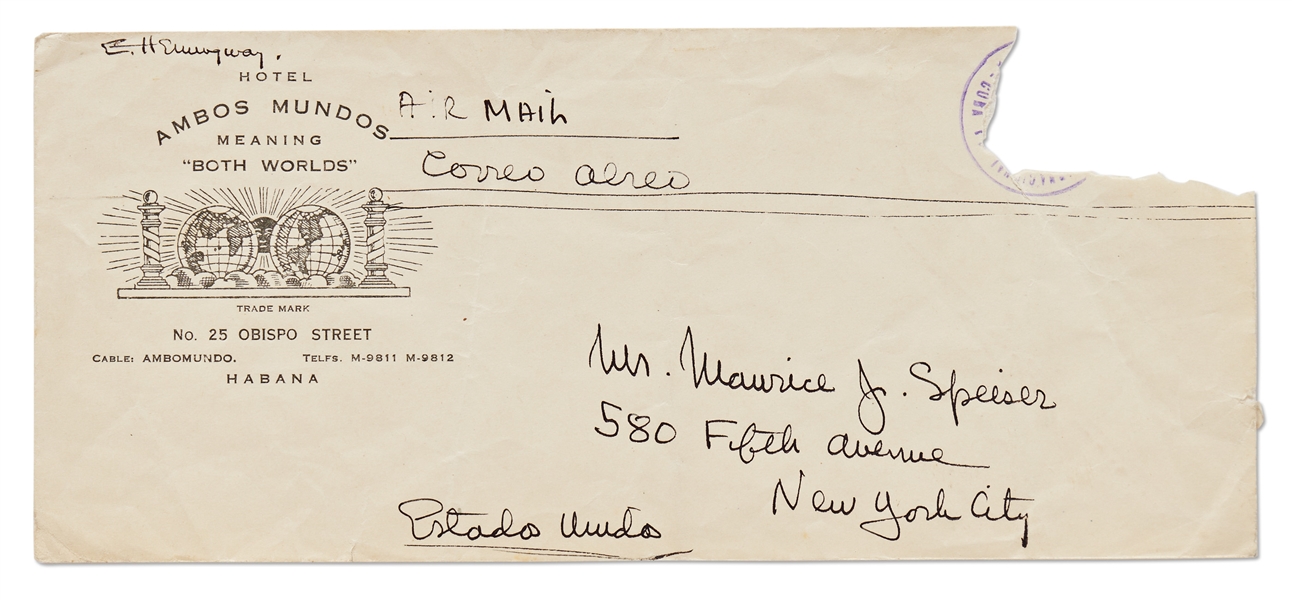 E. Hemingway.
HOTEL
AMBOS MUNDOS
MEANING
"BOTH WORLDS"
TRADE MARK
No. 25 OBISPO STREET
CABLE: AMBOMUNDO. TELFS. M-9811 M-9812
HABANA
AIR MAIL
Correo aereo
CUBA
Mr. Maurice J. Speiser
580 Fifth Avenue
New York City
Estados Unidos